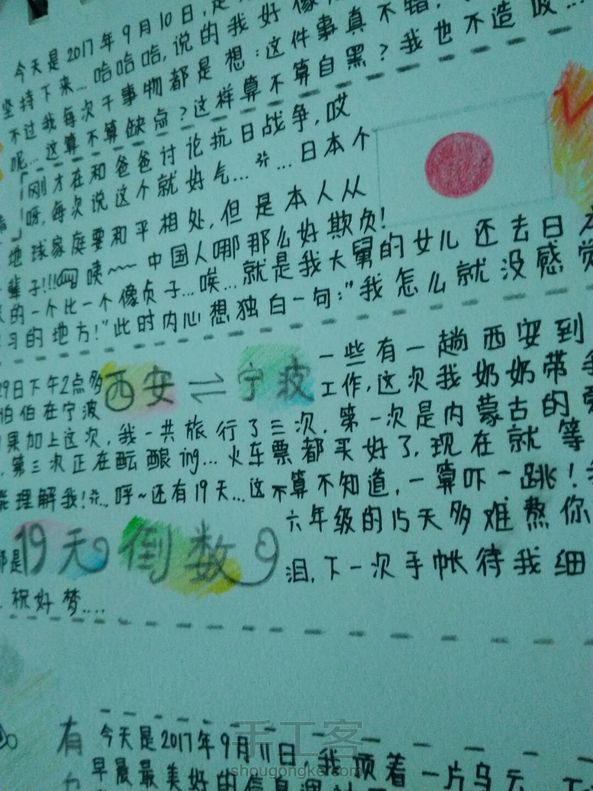 今天是2017年9月10日,是
坚持下来...哈哈哈,说的我好像
不过我每次干事物都是想:这件事真不错,
呢...这算不算缺点?这样算不算自黑?我也不造诶...
「刚才在和爸爸讨论抗日战争,哎
呀,每次说这个就好气... ...日本个
地球家庭要和平相处,但是本人从
辈子!!! 咦~~~中国人哪那么好欺负!
的一个比一个像贞子...唉...就是我大舅的女儿还去日本
习的地方!"此时内心想独白一句:"我怎么就没感觉
29日下午2点多 西安⇌宁波 一些有一趟西安到
伯伯在宁波 工作,这次我奶奶带我
果加上这次,我一共旅行了三次,第一次是内蒙古的
,第三次正在酝酿ing...火车票都买好了,现在就等
理解我! 呼~还有19天...这不算不知道,一算吓一跳!
都是19天倒数 六年级的15天多难熬你
泪,下一次手帐待我细
祝好梦....
有 今天是2017年9月11日,我顶着一片乌云,
早晨最美好的信息
手工客
shougongke.com